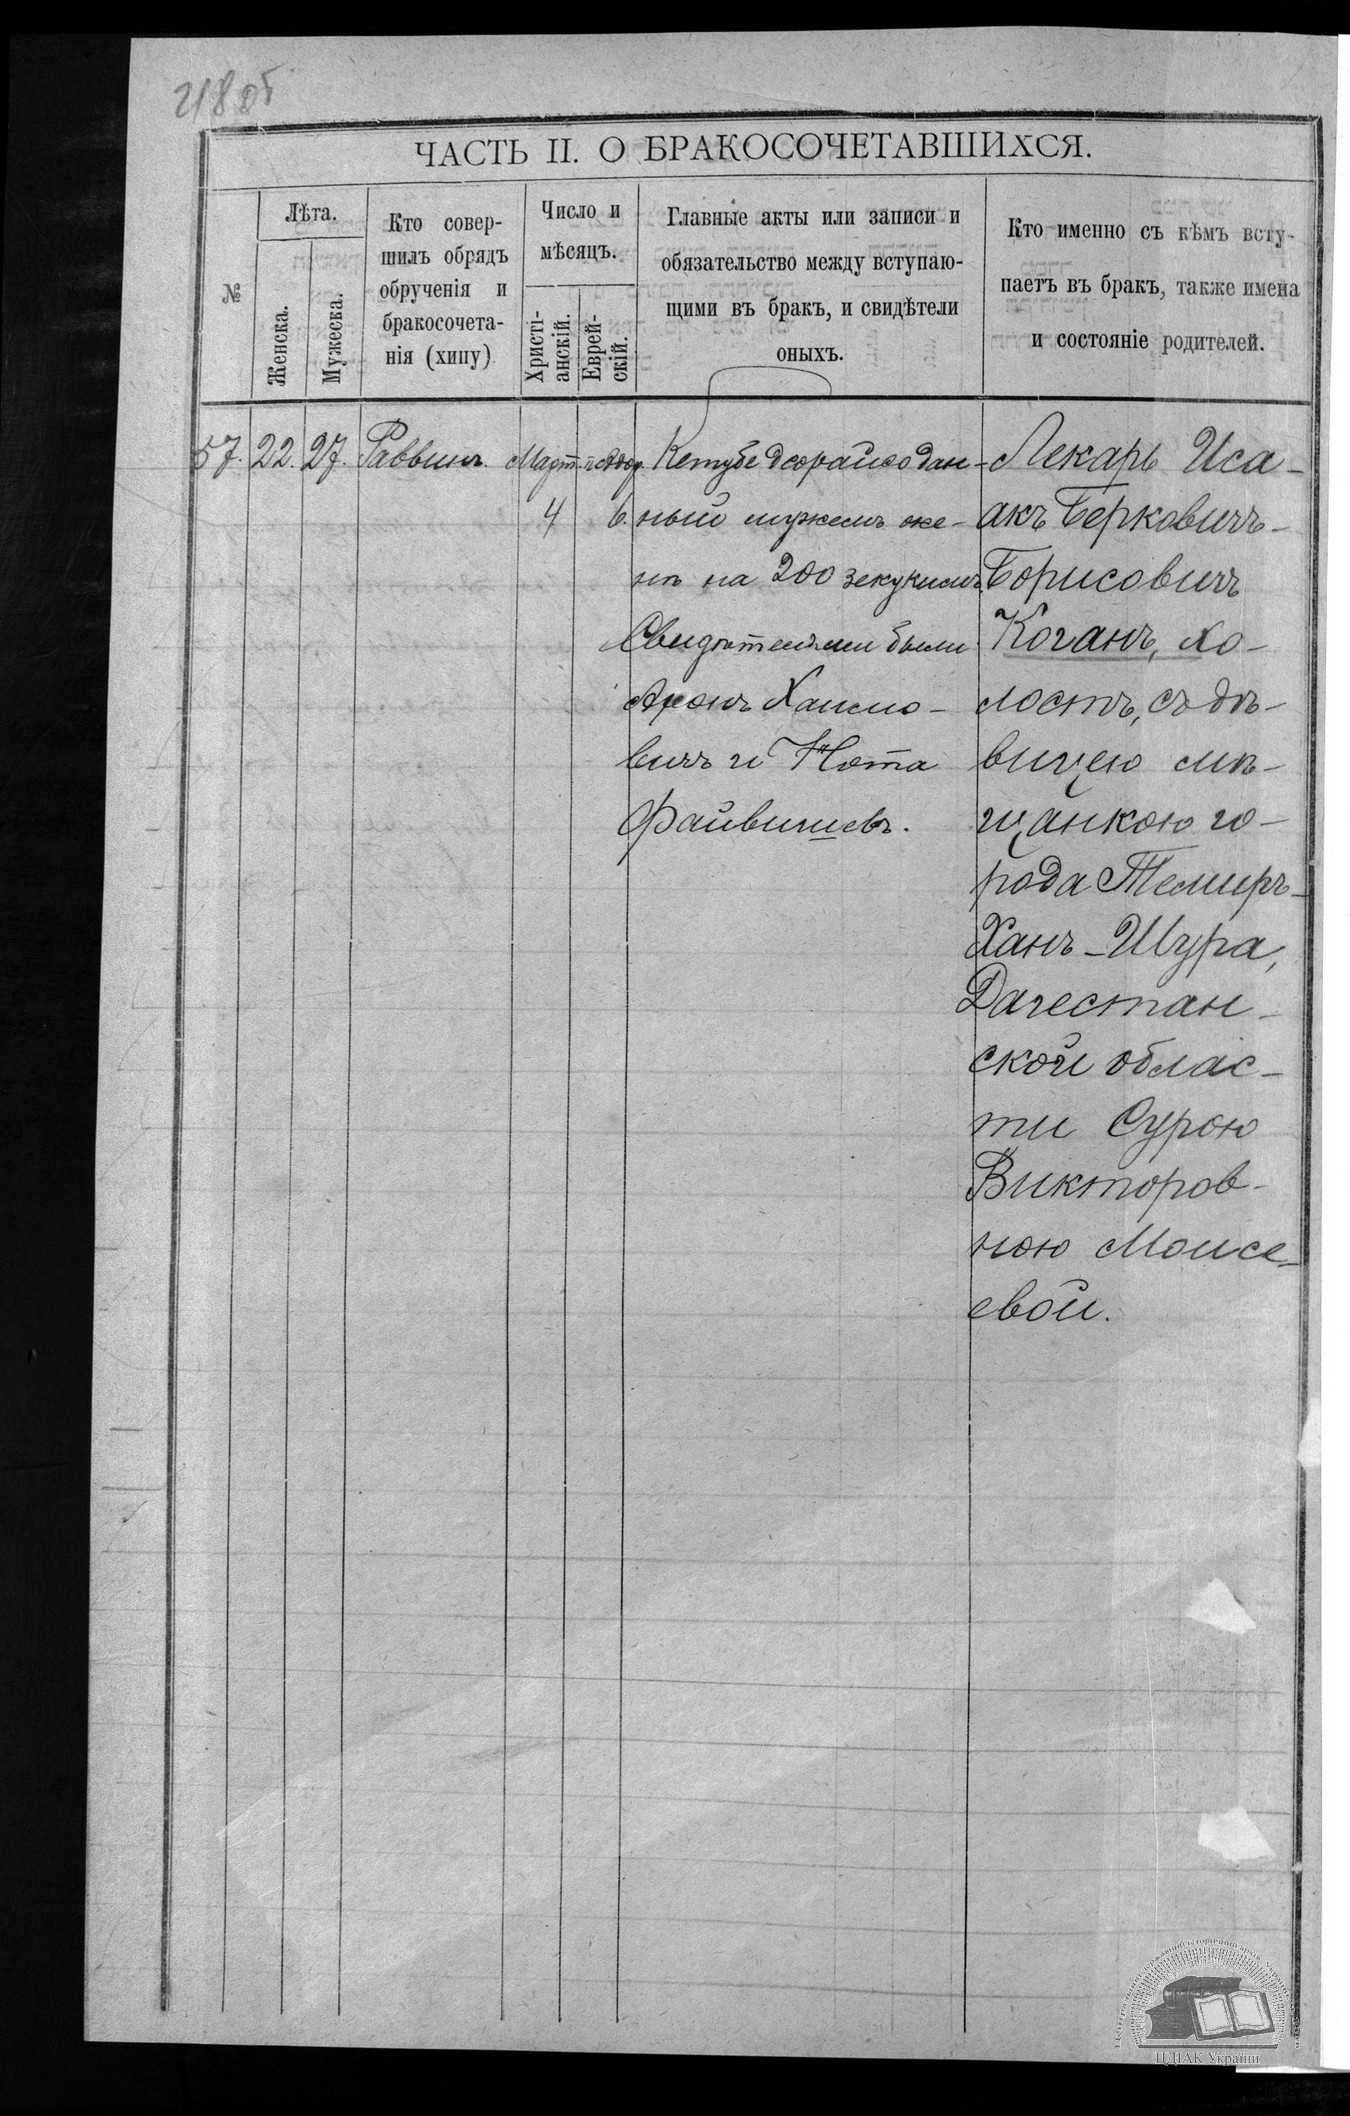 218 об
ЧАСТЬ II. О БРАКОСОЧЕТАВШИХСЯ.
№
Лѣта.
Женска.
Мужеска.
Кто совер-
шилъ обрядъ
обрученія и
бракосочета-
нія (хипу)
Число и
мѣсяцъ.
Христі-
анскій.
Еврей-
скій.
Главные акты или записи и
обязательство между вступаю-
щими въ бракъ, и свидѣтели
оныхъ.
Кто именно съ кѣмъ всту-
паетъ въ бракъ, также имена
и состояніе родителей.
57. 22. 27. Раввинъ. Март.
4
6.
Кетубе деорайсо дан-
ный мужемъ же-
нѣ на 200 зекукимъ.
Свидѣтелями были
Аронъ Хаимо-
вичъ и Нота
Файвишевъ.
Лекарь Иса-
акъ Берковичъ-
Борисовичъ
Коганъ, хо-
лостъ, съ дѣ-
вицею мѣ-
щанкою го-
рода Темиръ-
Ханъ-Шура,
Дагестан-
ской облас-
ти Сурою
Викторов-
ною Моисе-
евой.
ЦДІАК України